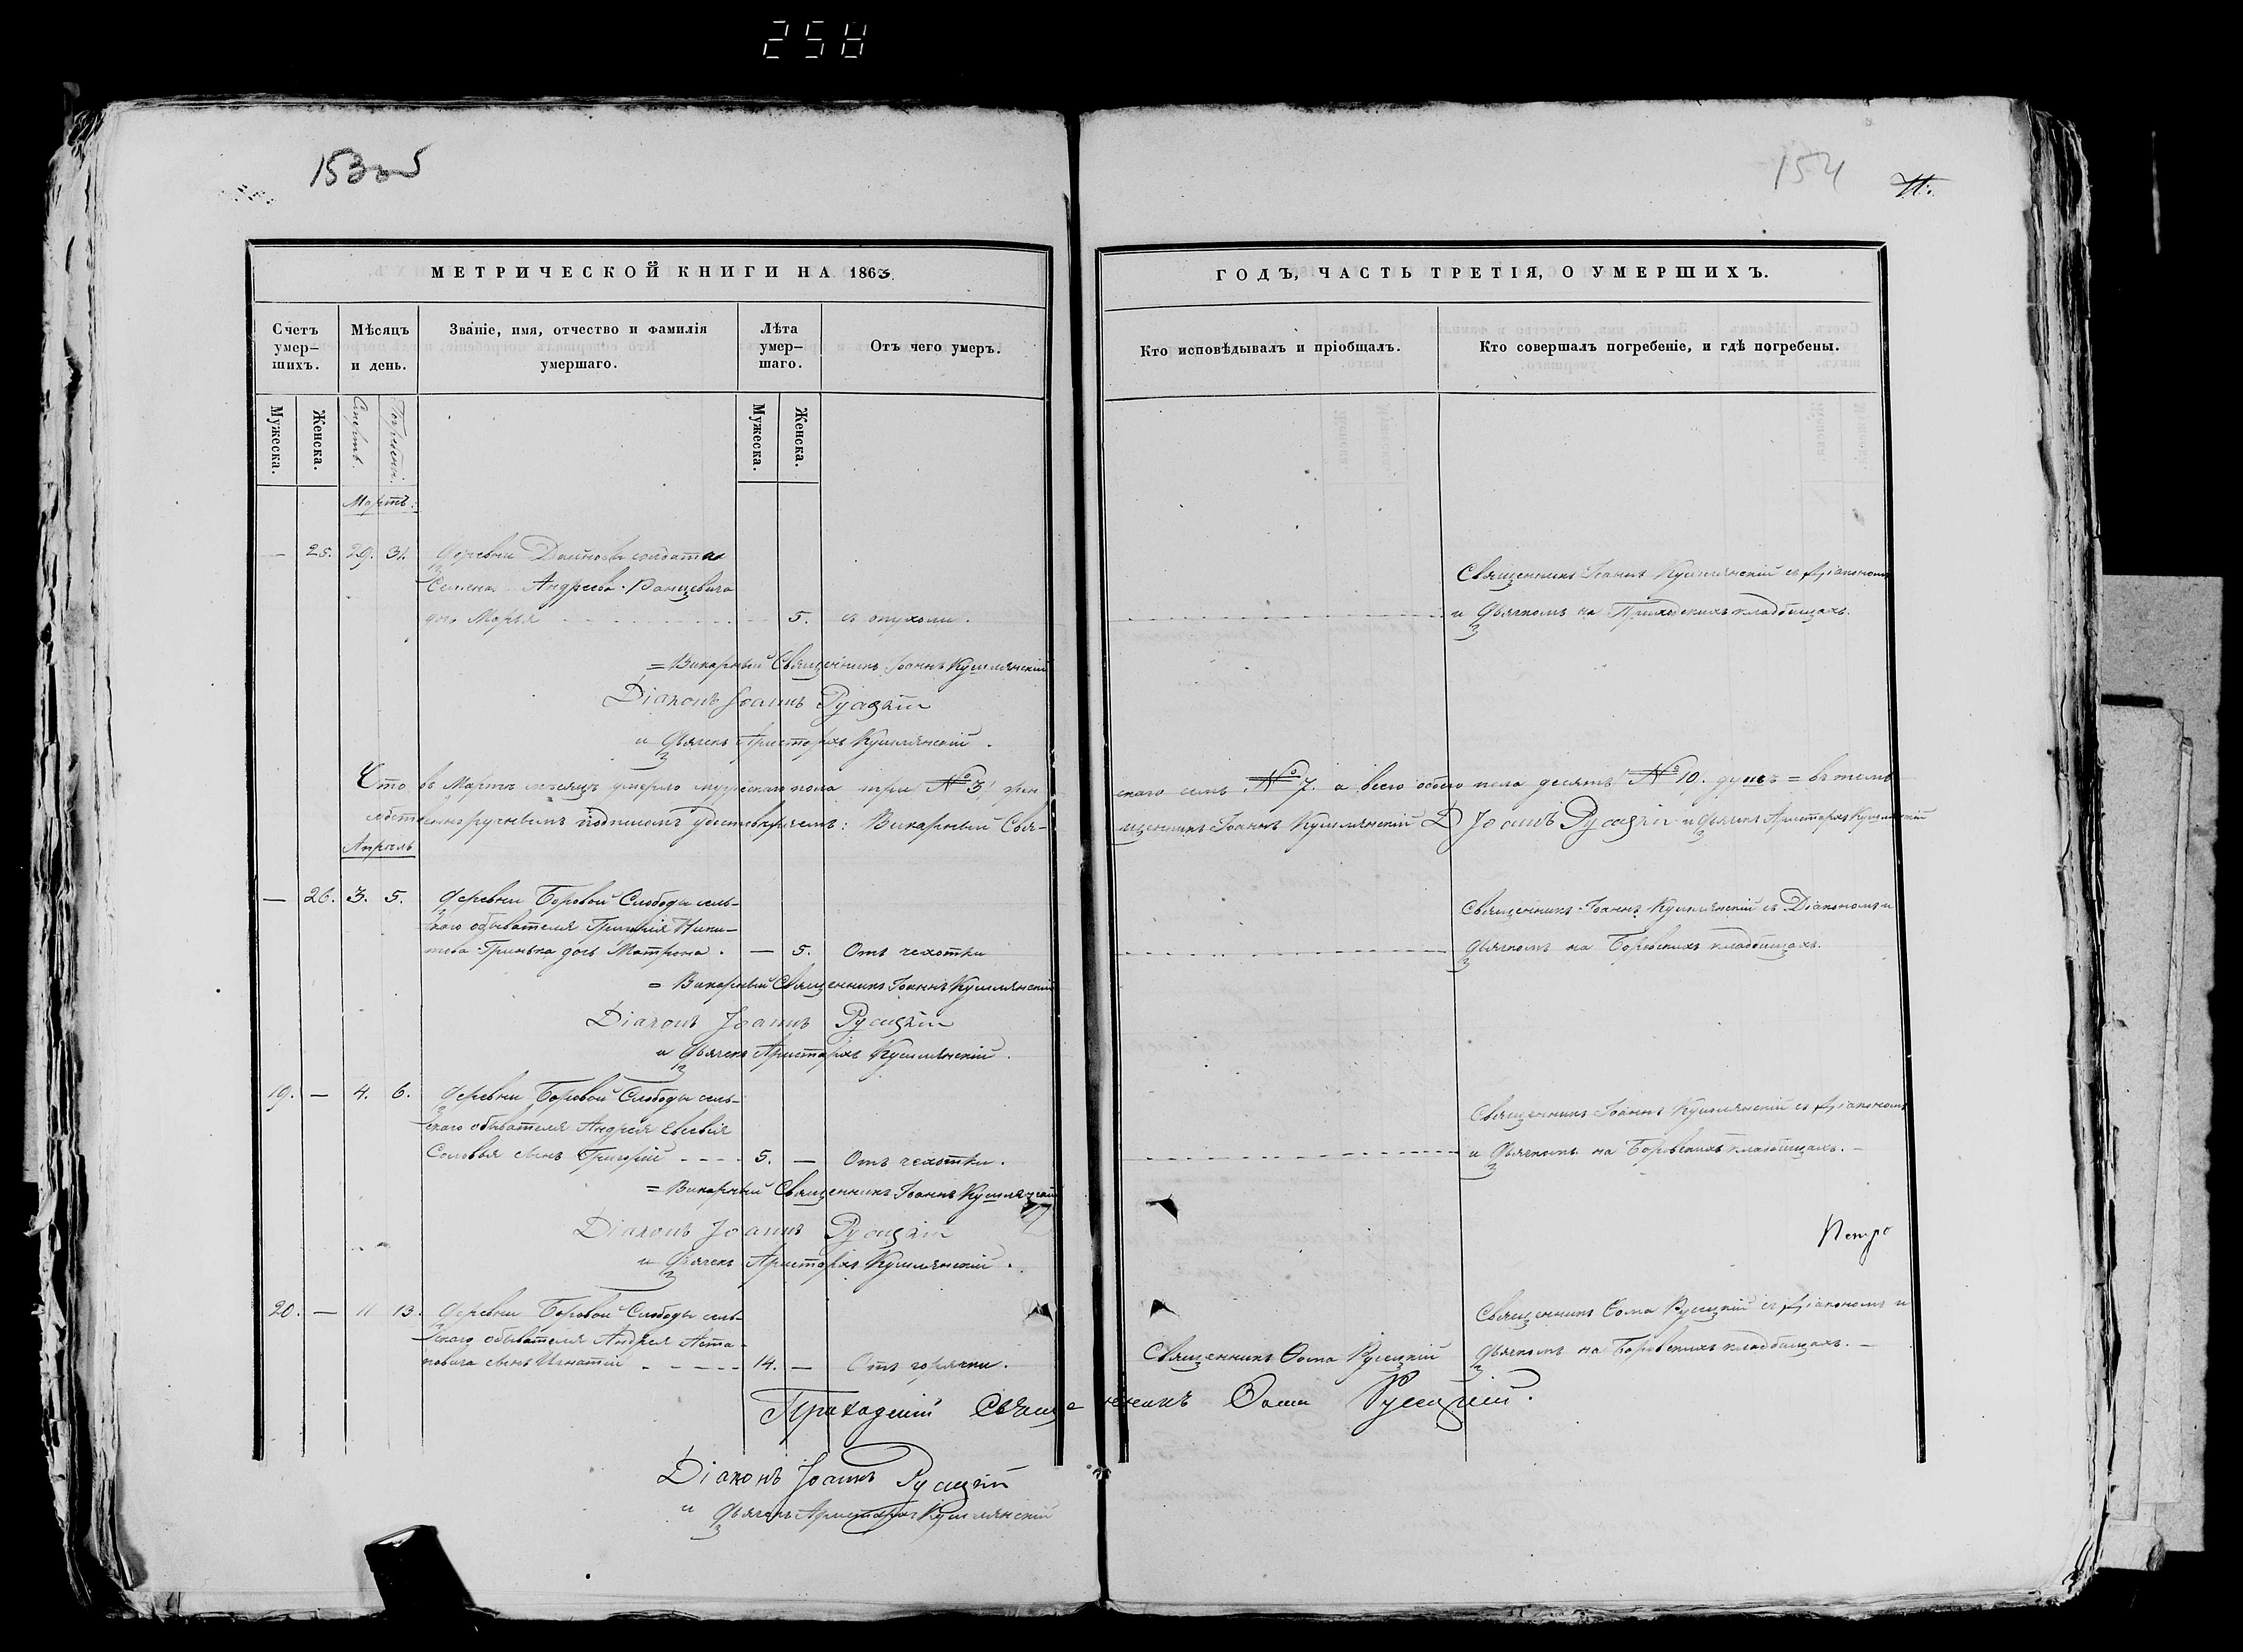 258
153об
154
МЕТРИЧЕСКОЙ КНИГИ НА 1863.
ГОДЪ, ЧАСТЬ ТРЕТІЯ, О УМЕРШИХЪ.
Счетъ умер-шихъ.
Мѣсяцъ и день.
Званіе, имя, отчество и фамилія умершаго.
Лѣта умер-шаго.
Отъ чего умеръ.
Кто исповѣдывалъ и пріобщалъ.
Кто совершалъ погребеніе, и гдѣ погребены.
Мужеска.
Женска.
Смерть.
Погребенія.
Мужеска.
Женска.
Мартъ.
— 25. 29. 31. Деревни солдата
Семена Андреева
дочь Марья 5. съ опухоли.
Священникъ Іоаннъ Кушлянскій съ Діакономъ
и Дьячкомъ на Приходскихъ кладбищахъ.
= Викарный Священникъ Іоаннъ Кушлянскій
Діаконъ Іоаннъ Русецкій
и Дьячекъ Аристархъ Кушлянскій.
Что въ Мартѣ мѣсяцѣ умерло мужескаго пола три № 3, жен
скаго семь № 7. а всего обоего пола десять № 10. душъ = въ томъ
собственноручнымъ подписомъ удостовѣряемъ: Викарный Свя-
щенникъ Іоаннъ Кушлянскій Д Іоаннъ Русецкій и Дьячекъ Аристархъ Кушлянскій
Апрель
— 26. 3. 5. Деревни Боровой Слободы сель-
скаго обывателя Григорія Ники-
тева Гринька дочь Матрона. — 5. Отъ чехотки
Священникъ Іоаннъ Кушлянскій съ Діакономъ и
Дьячкомъ на Боровскихъ кладбищахъ.
= Викарный Священникъ Іоаннъ Кушлянскій
Діаконъ Іоаннъ Русецкій
и Дьячекъ Аристархъ Кушлянскій.
19. — 4. 6. Деревни Боровой Слободы сель-
скаго обывателя Андрея Евсевія
Соловья сынъ Григорій 5. — Отъ чехотки.
Священникъ Іоаннъ Кушлянскій съ Діакономъ
и Дьячкомъ на Боровскихъ кладбищахъ. —
= Викарный Священникъ Іоаннъ Кушлянскій
Діаконъ Іоаннъ Русецкій
и Дьячекъ Аристархъ Кушлянскій.
20. — 11 13. Деревни Боровой Слободы сель-
скаго обывателя Андрея Аста-
повича сынъ Игнатій 14. — Отъ горячки.
Священникъ Ѳома Русецкій
Священникъ Ѳома Русецкій съ Діакономъ и
Дьячкомъ на Боровскихъ кладбищахъ. —
Приходскій Священникъ Ѳома Русецкій.
Діаконъ Іоаннъ Русецкій
и Дьячекъ Аристархъ Кушлянскій